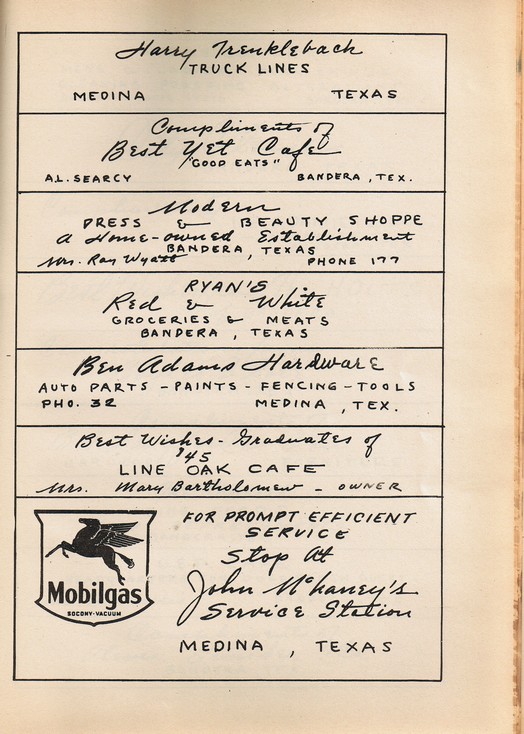 Harry Trenkleback
TRUCK LINES
MEDINA TEXAS
Compliments of
Best Yet Cafe
"GOOD EATS"
A.L. SEARCY BANDERA, TEX.
Modern
DRESS & BEAUTY SHOPPE
a Home-owned Establishment
BANDERA, TEXAS
Mrs. Ray Wyatt PHONE 177
RYAN'S
Red & White
GROCERIES & MEATS
BANDERA, TEXAS
Ben Adams Hardware
AUTO PARTS - PAINTS - FENCING - TOOLS
PHO. 32 MEDINA, TEX.
Best Wishes - Graduates of
'45
LINE OAK CAFE
Mrs. Mary Bartholomew - OWNER
FOR PROMPT EFFICIENT
SERVICE
Stop At
John McHaney's
Service Station
MEDINA, TEXAS
Mobilgas
SOCONY-VACUUM